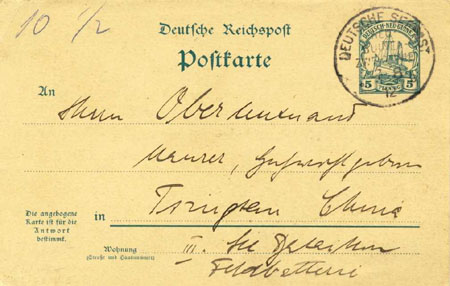 10 1/2
Deutsche Reichspost
Postkarte
DEUTSCHE SEEPOST
DEUTSCH-NEU-GUINEA
5 PFENNIG 5
An
Herrn Oberleutnant
Maurer,
Tsingtau China
Die angebogene
Karte ist für die
Antwort
bestimmt.
in
Wohnung
(Straße und Hausnummer)
III. See Bataillon
Feldbatterie